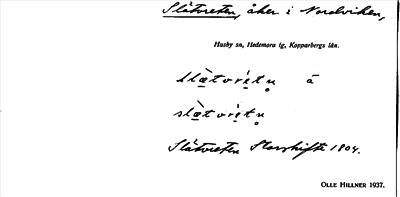 Slåtvreten, åker i Nordviken,
Husby sn, Hedemora tg, Kopparbergs län.
å
Slåtvreten Storskifte 1804.
OLLE HILLNER 1937.